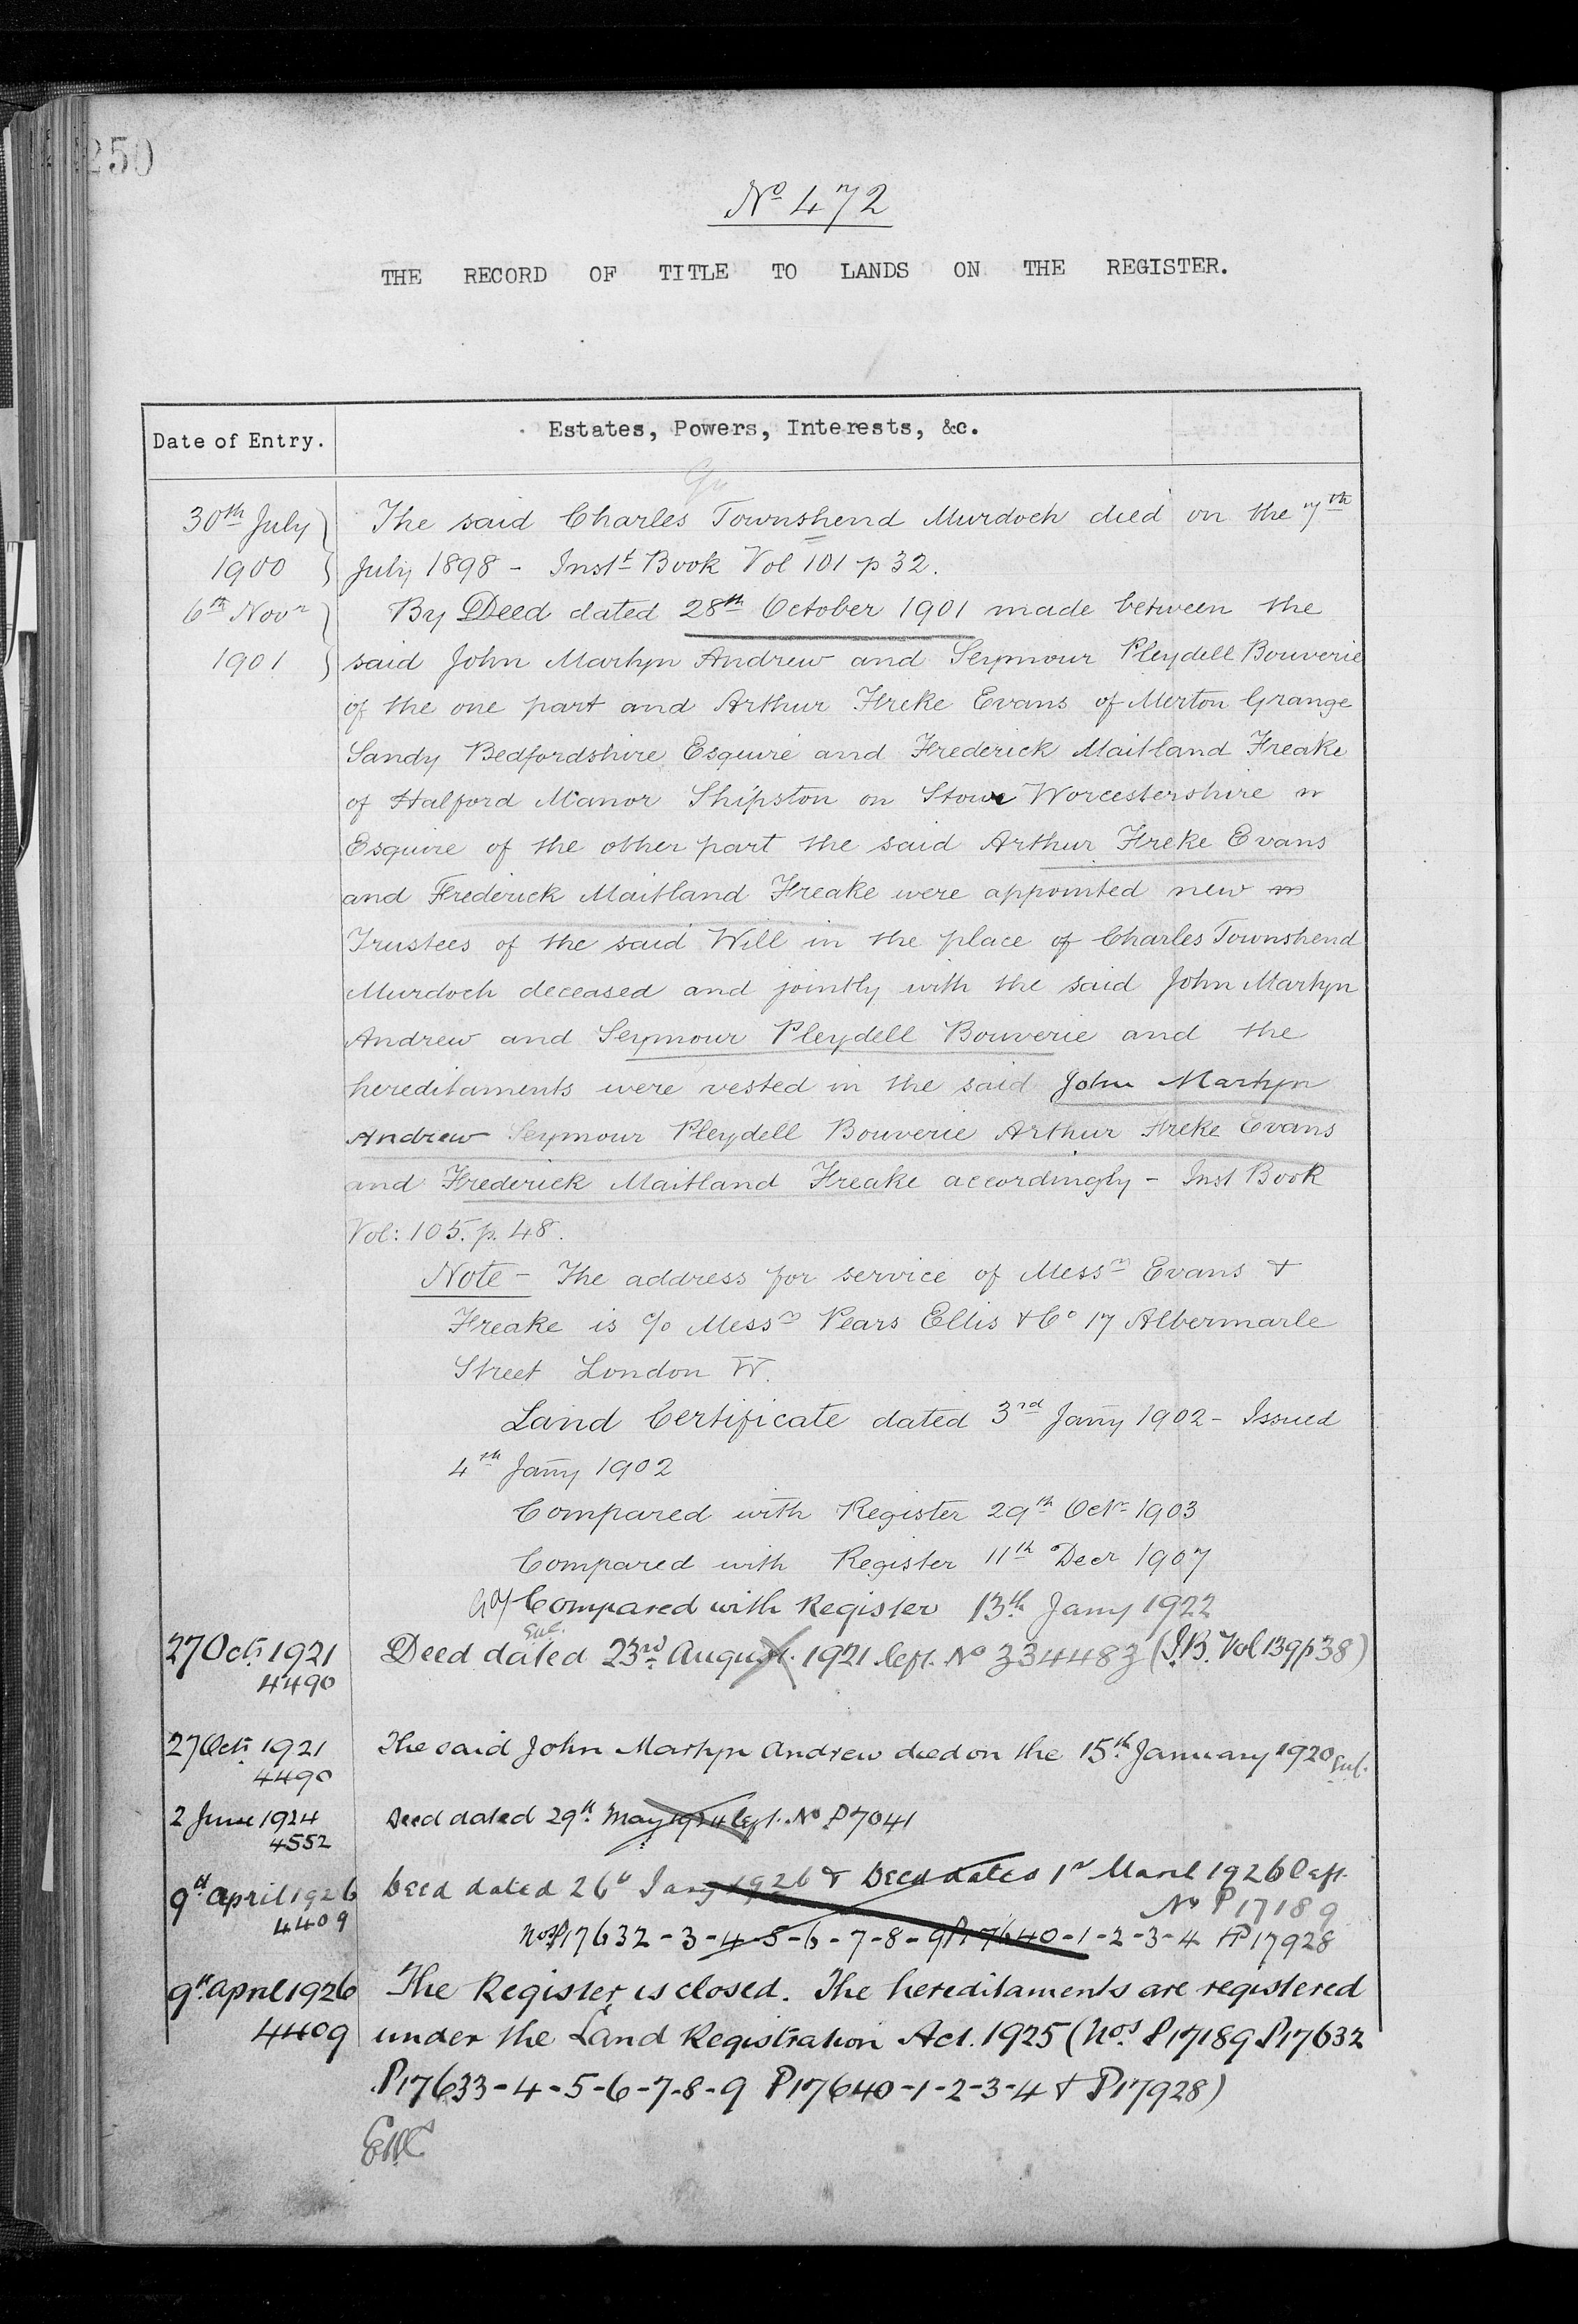 250
No 472
THE RECORD OF TITLE TO LANDS ON THE REGISTER.
Date of Entry. Estates, Powers, Interests, &c.
30th July The said Charles Townshend Murdoch died on the 7th
1900 July 1898 - Inst Book Vol 101 p 32.
6th Novr By Deed dated 28th October 1901 made between the
1901 said John Martyn Andrew and Seymour Pleydell Bouverie
of the one part and Arthur Freke Evans of Merton Grange
Sandy Bedfordshire Esquire and Frederick Maitland Freake
of Halford Manor Shipston on Stour Worcestershire
Esquire of the other part the said Arthur Freke Evans
and Frederick Maitland Freake were appointed new
Trustees of the said Will in the place of Charles Townshend
Murdoch deceased and jointly with the said John Martyn
Andrew and Seymour Pleydell Bouverie and the
hereditaments were vested in the said John Martyn
Andrew Seymour Pleydell Bouverie Arthur Freke Evans
and Frederick Maitland Freake accordingly - Inst Book
Vol: 105. p. 48.
Note - The address for service of Messrs Evans &
Freake is c/o Messrs Pears Ellis & Co 17 Albermarle
Street London W.
Land Certificate dated 3rd Jany 1902 - Issued
4th Jany 1902
Compared with Register 29th Octr 1903
Compared with Register 11th Decr 1907
Compared with Register 13th Jany 1922
27 Oct: 1921 Deed dated 23rd August 1921 left. No 334483 (I.B. Vol 139 p 38)
4490
27 Oct: 1921 The said John Martyn Andrew died on the 15th January 1920
4490
2 June 1924 Deed dated 29th May 1924 left. No P7041
4552
9th April 1926 Deed dated 26th Jany 1926 & Deed dated 1st March 1926 left.
4409 No P17189
Nos P17632-3-4-5-6-7-8-9 P17640-1-2-3-4 & P17928
9th April 1926 The Register is closed. The hereditaments are registered
4409 under the Land Registration Act. 1925 (Nos P17189 P17632
P17633-4-5-6-7-8-9 P17640-1-2-3-4 & P17928)